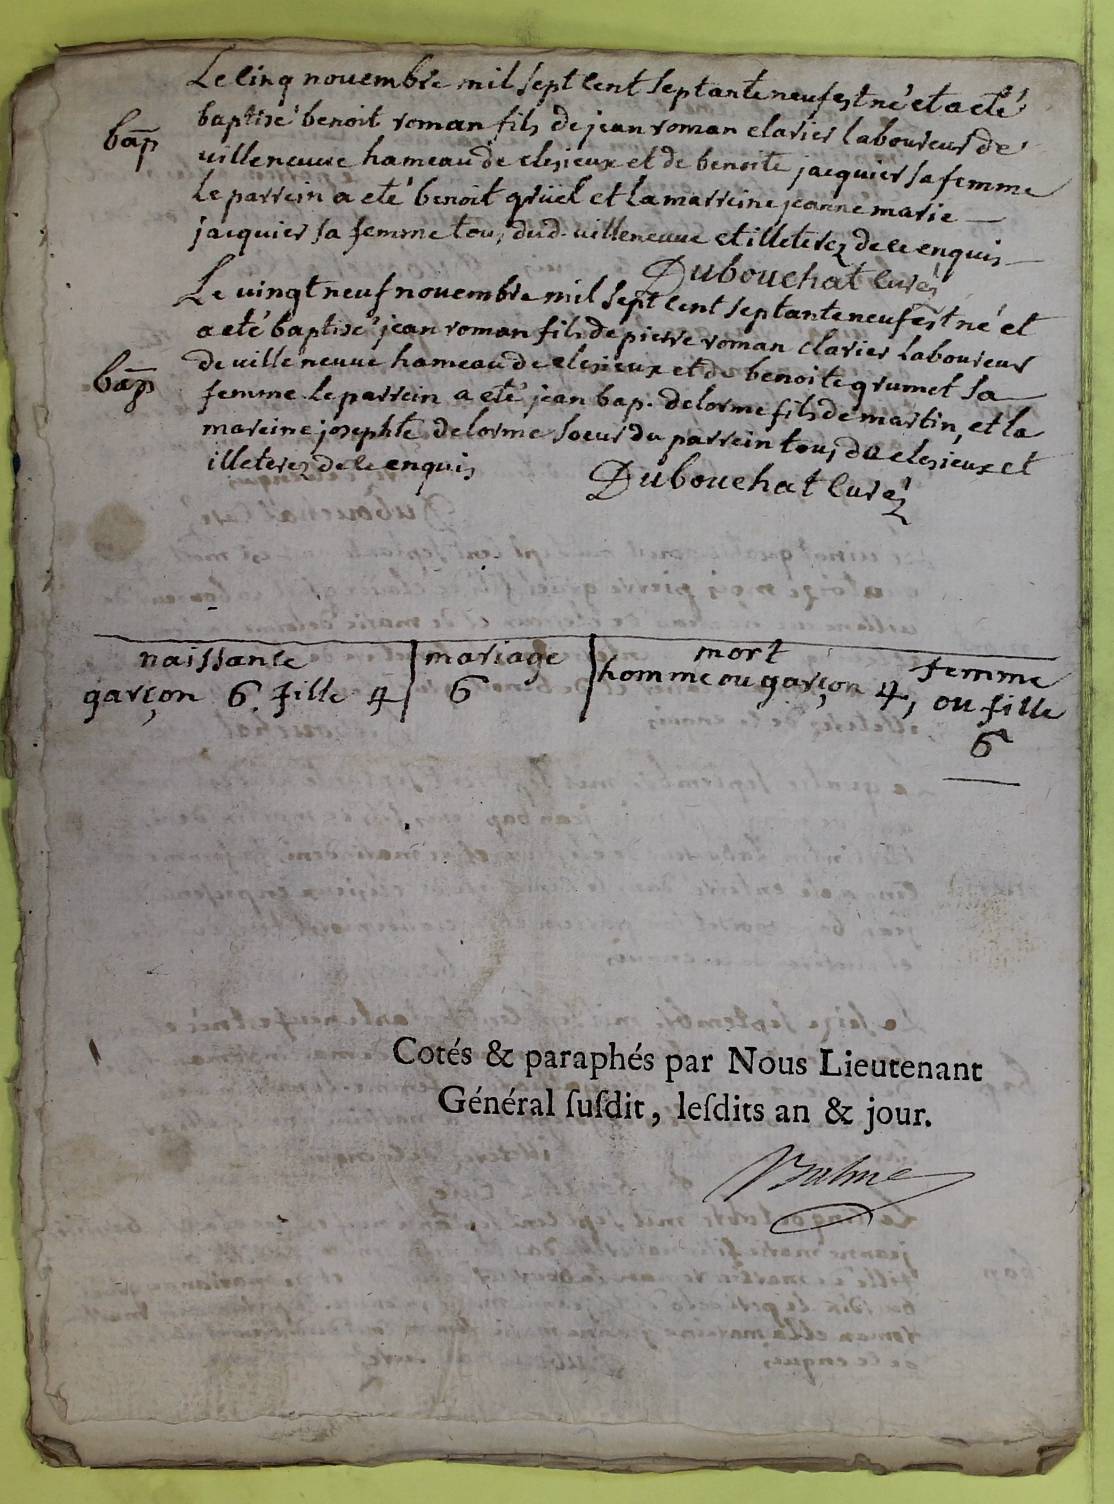 Le cinq novembre mil sept cent septante neuf est né et a eté
bap
baptisé benoit roman fils de jean roman clavier laboureur de
villeneuve hameau de clesieux et de benoite jacquier sa femme
le parrein a eté benoit grüel et la marreine jeanne marie
jacquier sa femme tous dud. villeneuve et illeterez de ce enquis
Dubouchat curé
Le vingt neuf novembre mil sept cent septante neuf est né et
a eté baptisé jean roman fils de pierre roman clavier laboureur
bap
de villeneuve hameau de clesieux et de benoite grumet sa
femme le parrein a eté jean bap. delorme fils de martin, et la
mareine josephte delorme soeur du parrein tous de clesieux et
illeterez de ce enquis
Dubouchat curé
naissance | mariage | mort
garçon 6. fille 4 | 6 | homme ou garçon 4, femme ou fille
6
Cotés & paraphés par Nous Lieutenant
Général ſuſdit, leſdits an & jour.
Balme